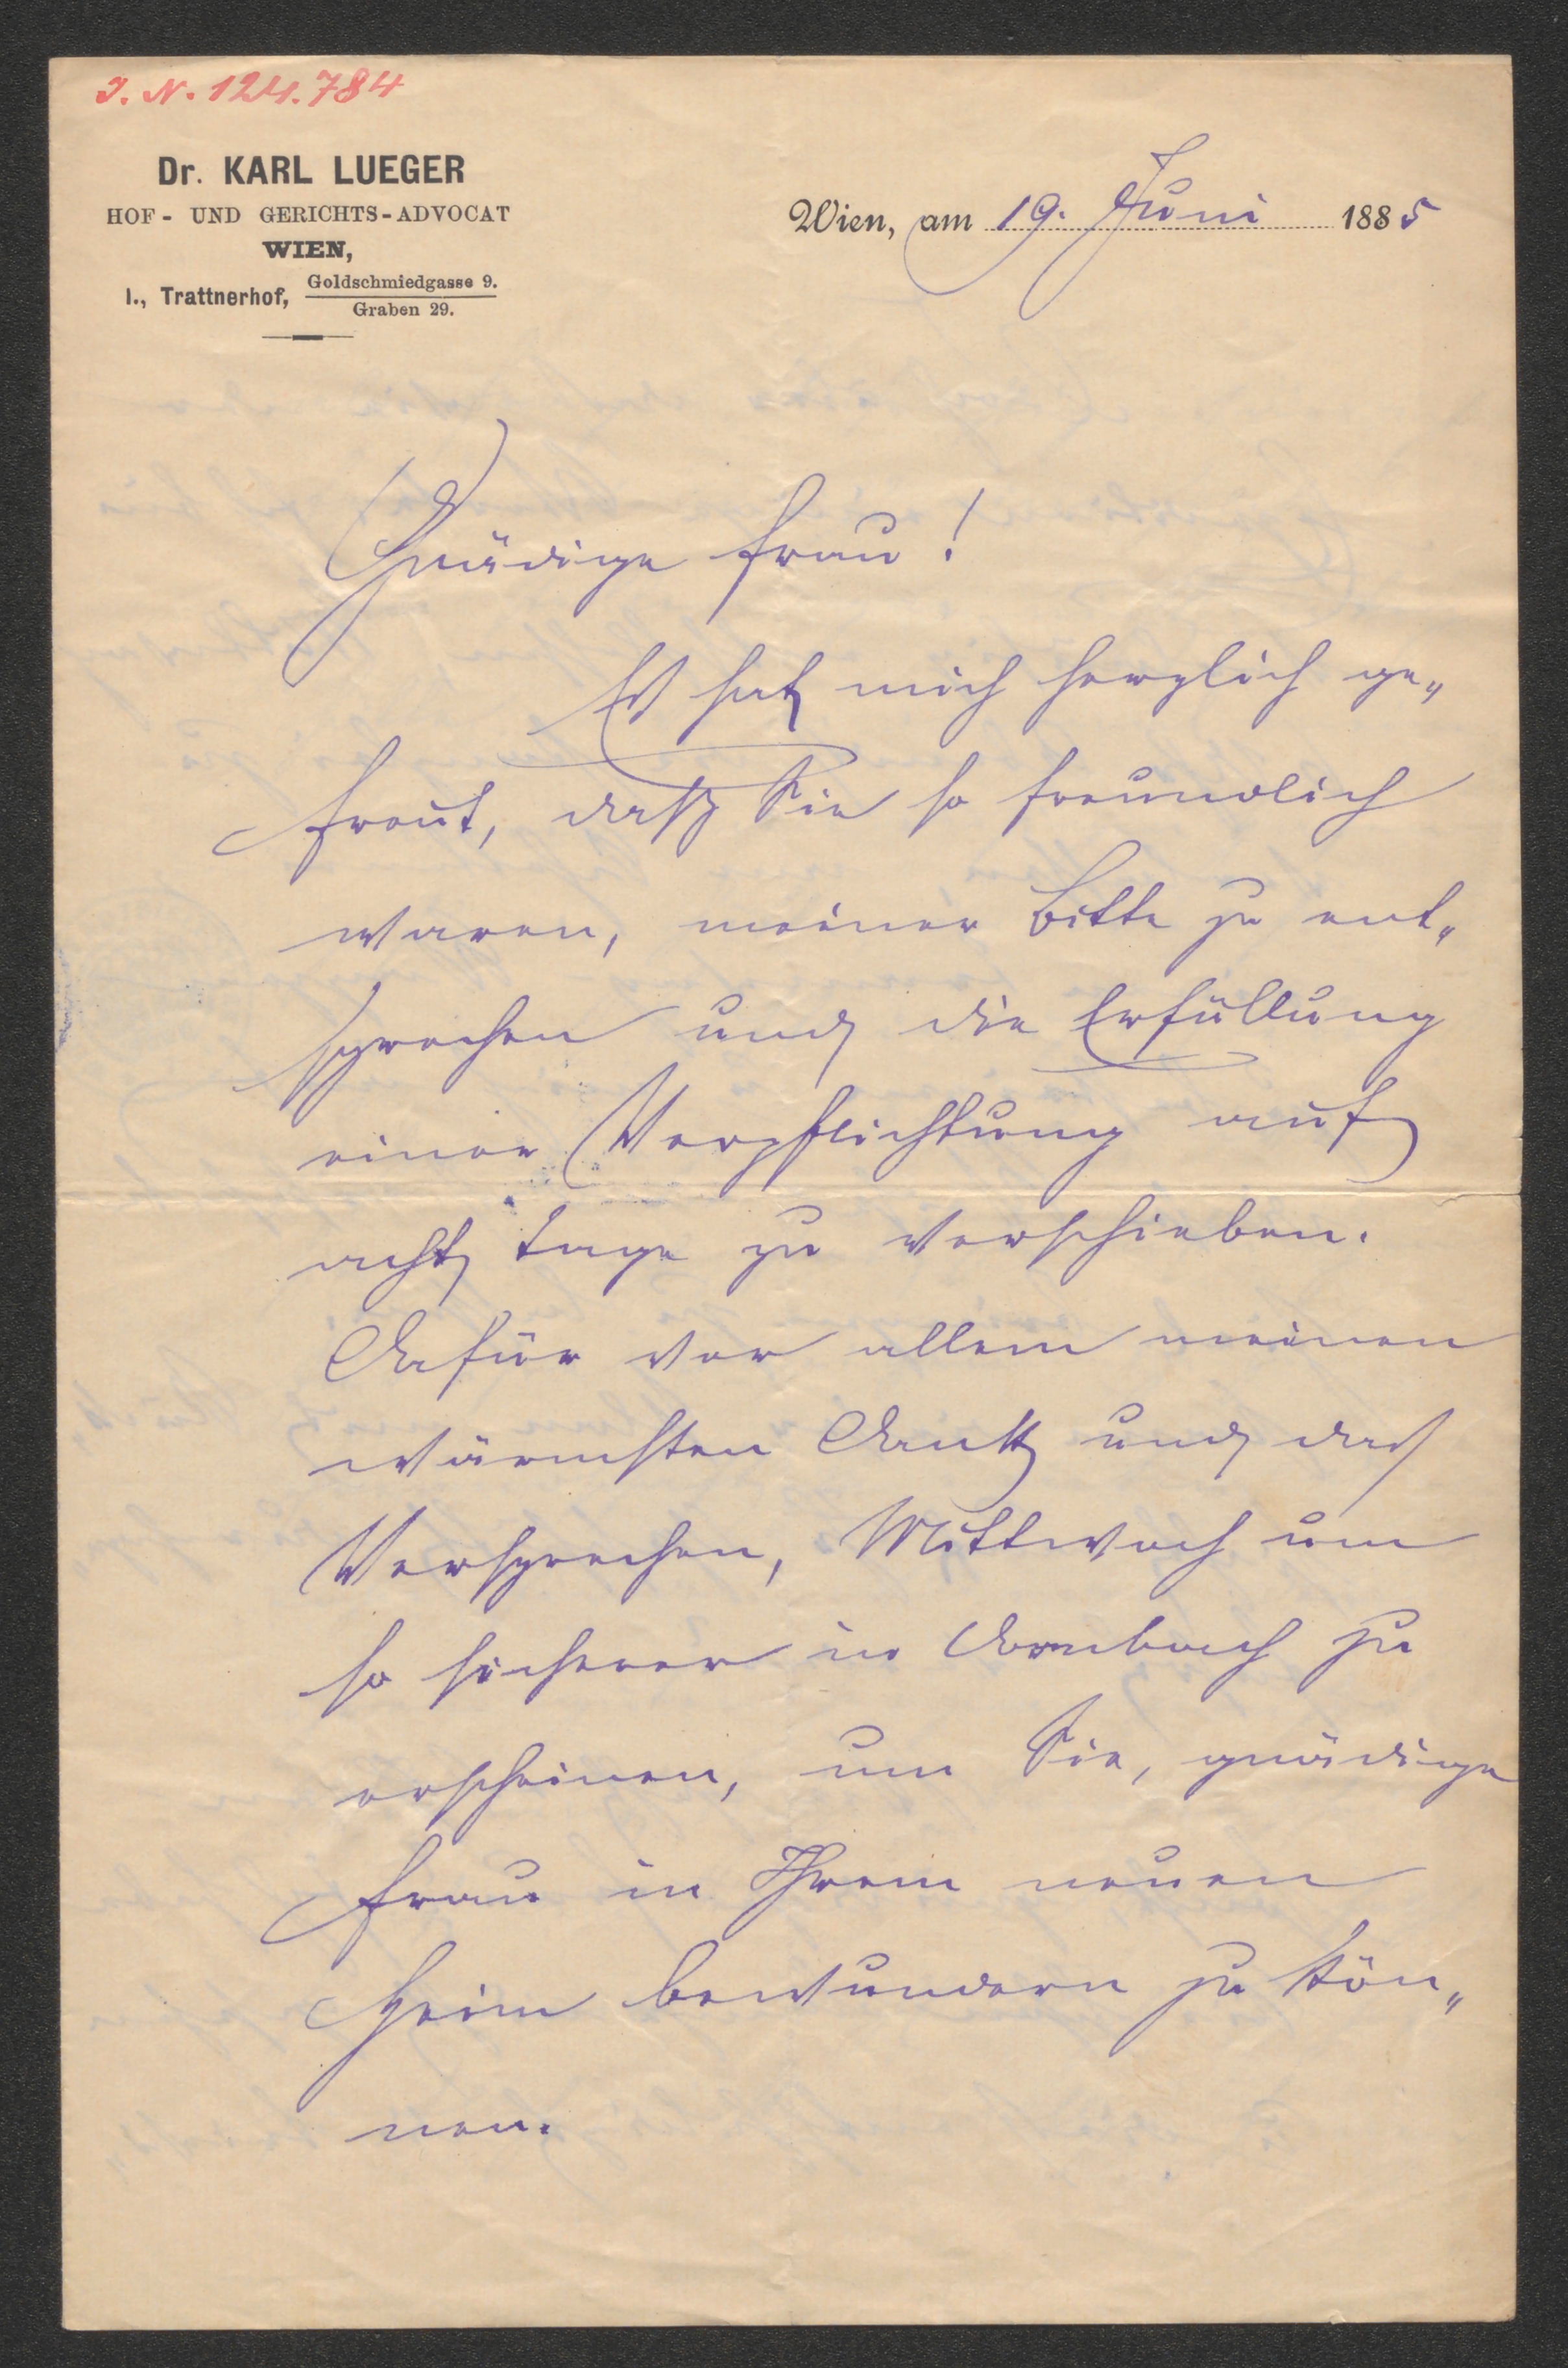 I. N. 124.784
Dr. KARL LUEGER
HOF- UND GERICHTS-ADVOCAT
WIEN,
I., Trattnerhof, Goldschmiedgasse 9.
Graben 29.
Wien, am 19. Juni 1885
Gnädige Frau!
Es hat mich herzlich ge„
freut, daß Sie so freundlich
waren, meiner Bitte zu ent„
sprechen und die Erfüllung
einer Verpflichtung auf
acht Tage zu verschieben.
Dafür vor allem meinen
wärmsten Dank und das
Versprechen, Mittwoch um
so sicherer in Dornbach zu
erscheinen, um Sie, gnädige
Frau in Ihrem neuen
Heim bewundern zu kön„
nen.